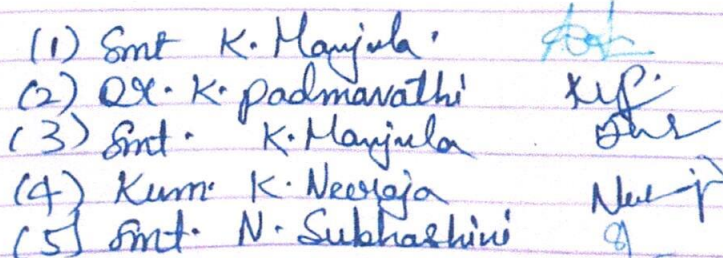 (1) Smt K. Manjula.
(2) Dr. K. padmavathi
(3) Smt. K. Manjula
(4) Kum. K. Neeraja
(5) Smt. N. Subhashini